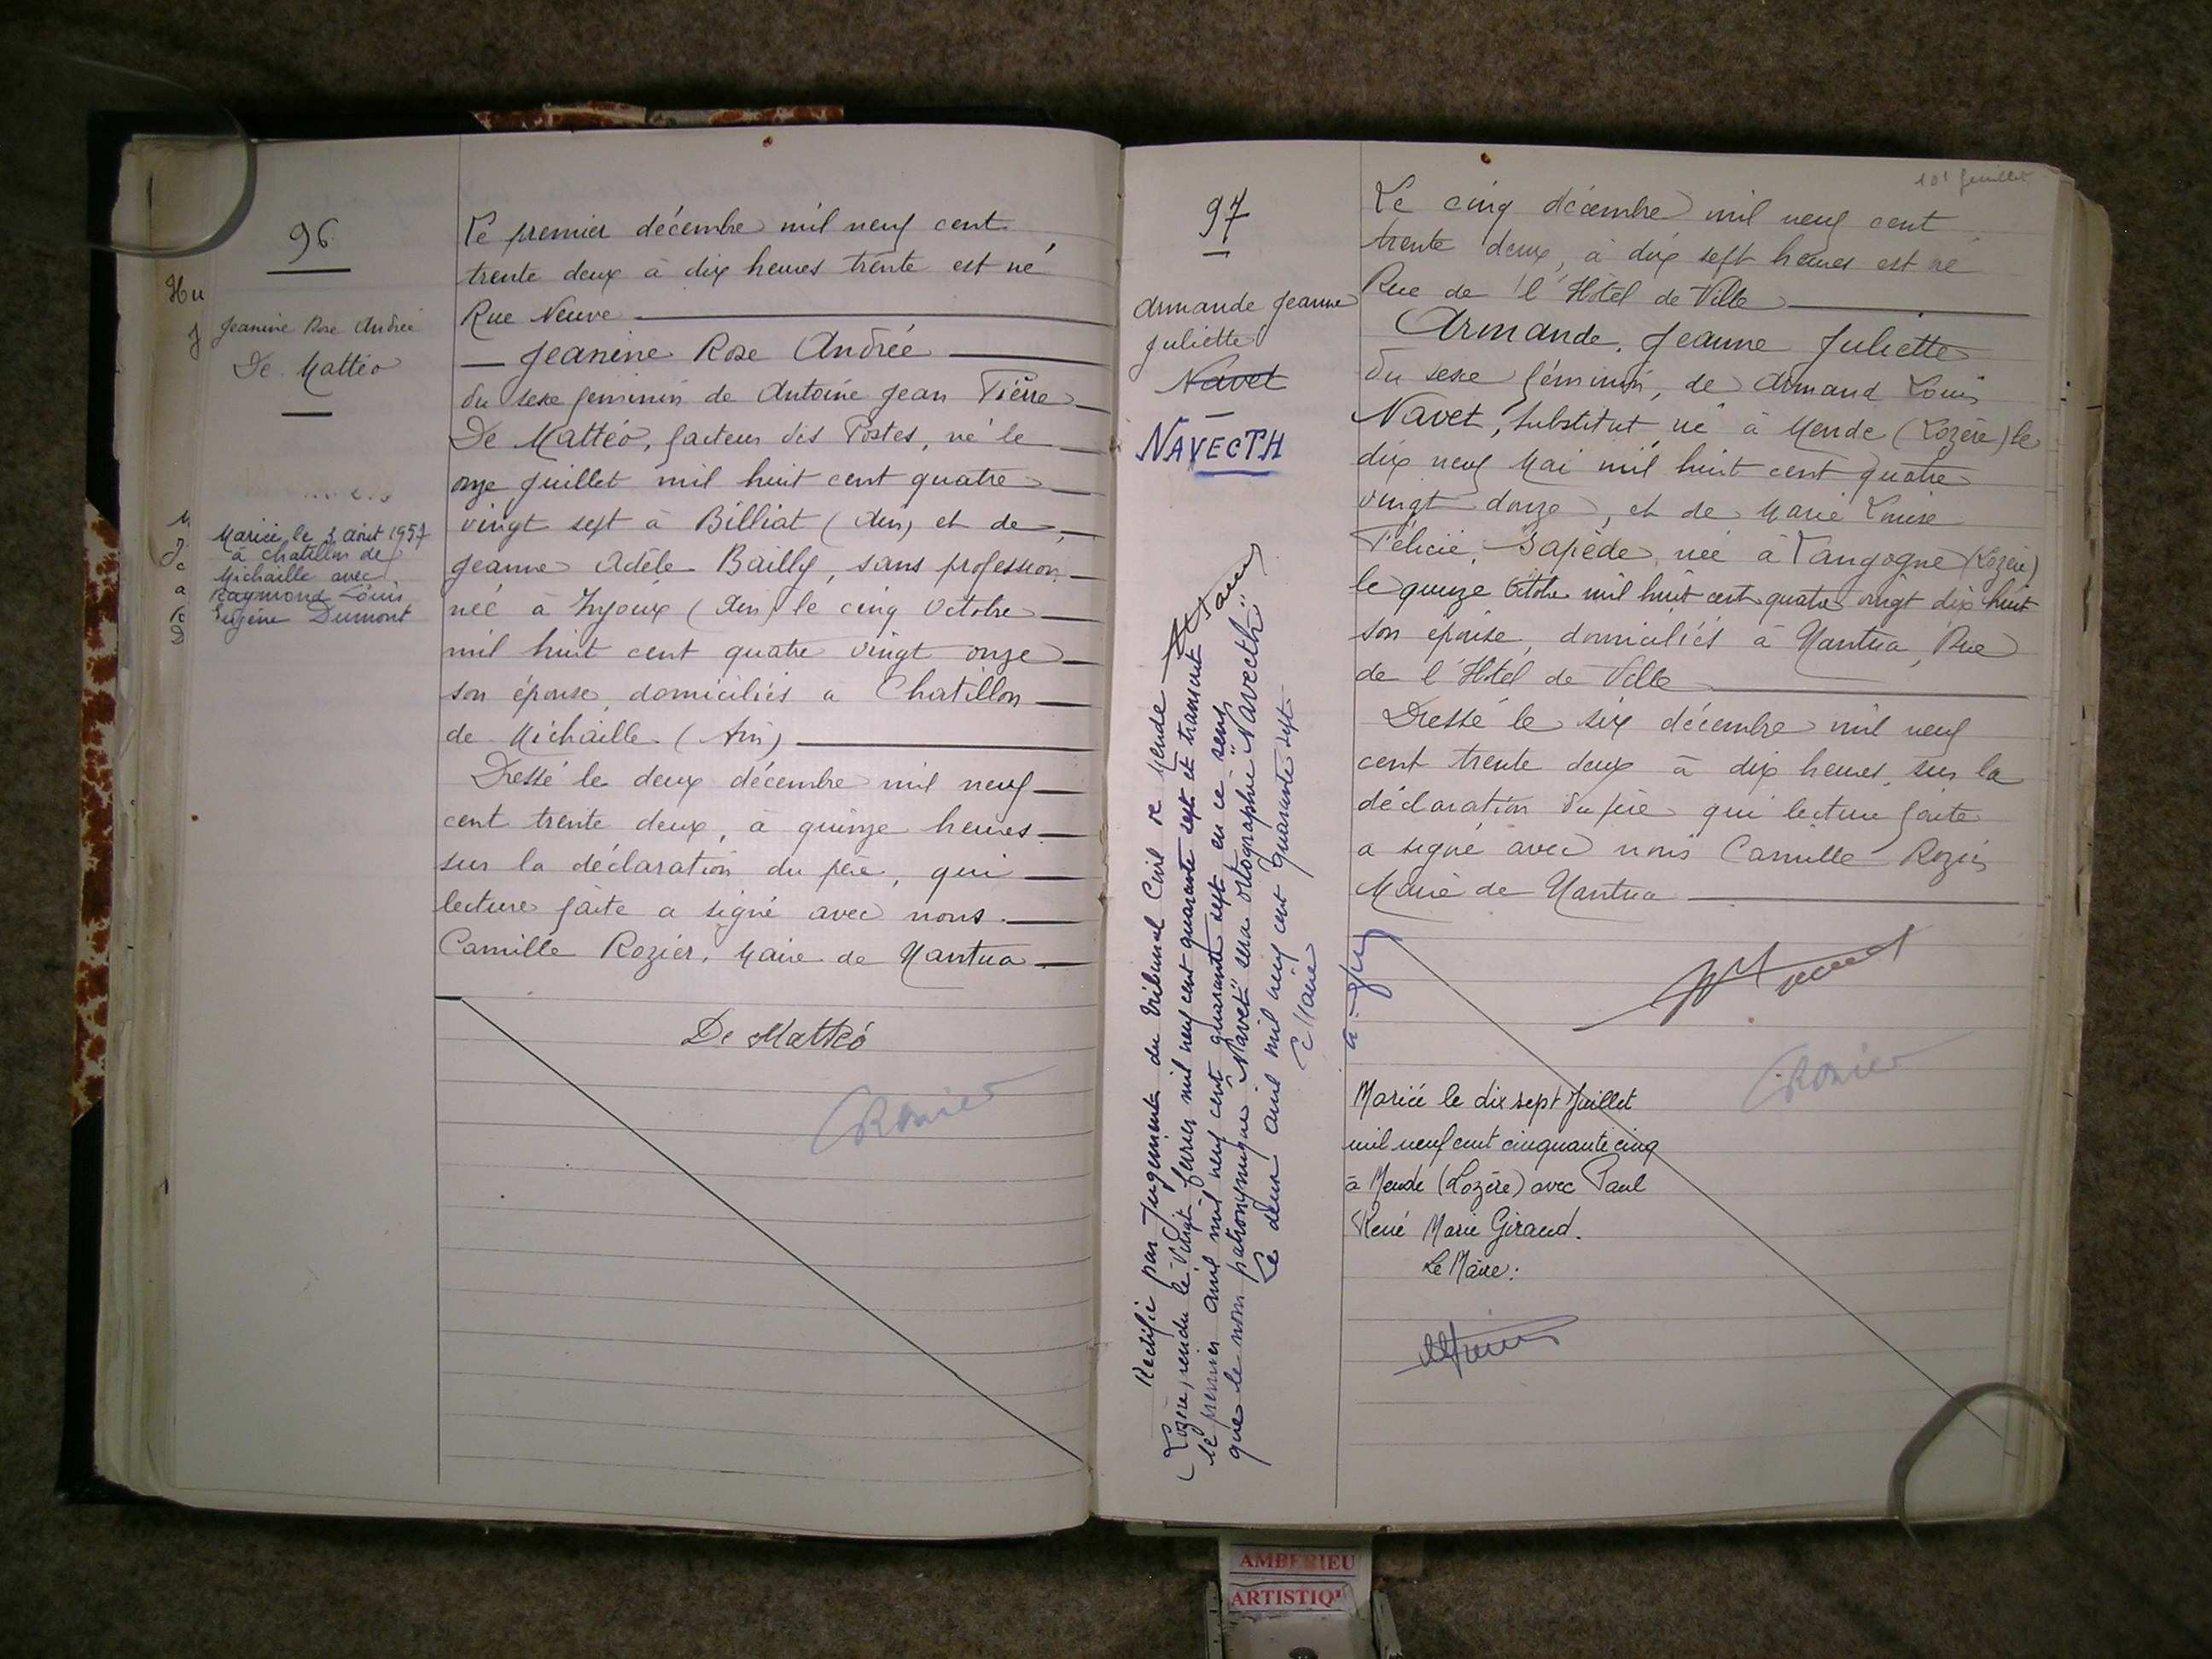 96
Jeanine Rose Andrée
De Mattéo
Mariée le 3 août 1957
à Chatillon de
Michaille avec
Raymond Louis
Eugène Dumont
Le premier décembre mil neuf cent
trente deux à dix heures trente est né
Rue Neuve
Jeanine Rose Andrée
du sexe feminin de Antoine Jean Pierre
De Mattéo, facteur des Postes, né le
onze juillet mil huit cent quatre
vingt sept à Billiat (Ain) et de
Jeanne Adèle Bailly, sans profession,
née à Injoux (Ain) le cinq octobre
mil huit cent quatre vingt onze
son épouse, domiciliés à Chatillon
de Michaille (Ain)
Dressé le deux décembre mil neuf
cent trente deux, à quinze heures
sur la déclaration du père, qui
lecture faite a signé avec nous
Camille Rozier, Maire de Nantua
De Mattéo
CRozier
101 feuillet
97
Armande Jeanne
Juliette
Navet
NAVECTH
Rectifié par Jugement du Tribunal Civil de Mende
(Lozère) rendu le Vingt février mil neuf cent quarante sept et transcrit
le premier avril mil neuf cent quarante sept en ce sens
que le nom patronymique "Navet" sera ortographié "Navecth"
Le deux avril mil neuf cent quarante sept
Le Maire
Le cinq décembre mil neuf cent
trente deux, à dix sept heures est né
Rue de l'Hôtel de Ville
Armande, Jeanne Juliette
du sexe féminin, de Armand Louis
Navet, substitut né à Mende (Lozère) le
dix neuf Mai mil huit cent quatre
vingt douze, et de Marie Louise
Félicie, Sapède, née à Langogne (Lozère)
le quinze Octobre mil huit cent quatre vingt dix huit
son épouse, domiciliés à Nantua, Rue
de l'Hôtel de Ville
Dressé le six décembre mil neuf
cent trente deux à dix heures, sur la
déclaration du père qui lecture faite
a signé avec nous Camille Rozier
Maire de Nantua
CRozier
Mariée le dix sept Juillet
mil neuf cent cinquante cinq
à Mende (Lozère) avec Paul
René Marie Giraud.
Le Maire:
AMBERIEU
ARTISTIQU